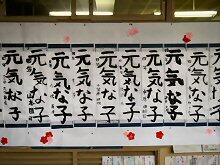 元気な子
元気な子
元気な子
元気な子
元気な子
元気な子
元気な子
元気な子